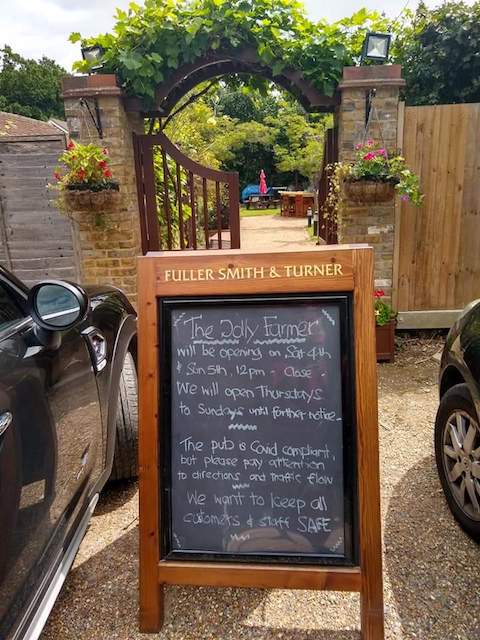 FULLER SMITH & TURNER
The Jolly Farmer
will be opening on Sat 4th
& Sun 5th, 12pm - Close -
We will open Thursdays
to Sundays until further notice.
The pub is Covid compliant,
but please pay attention
to directions and traffic flow
We want to keep all
customers & staff SAFE